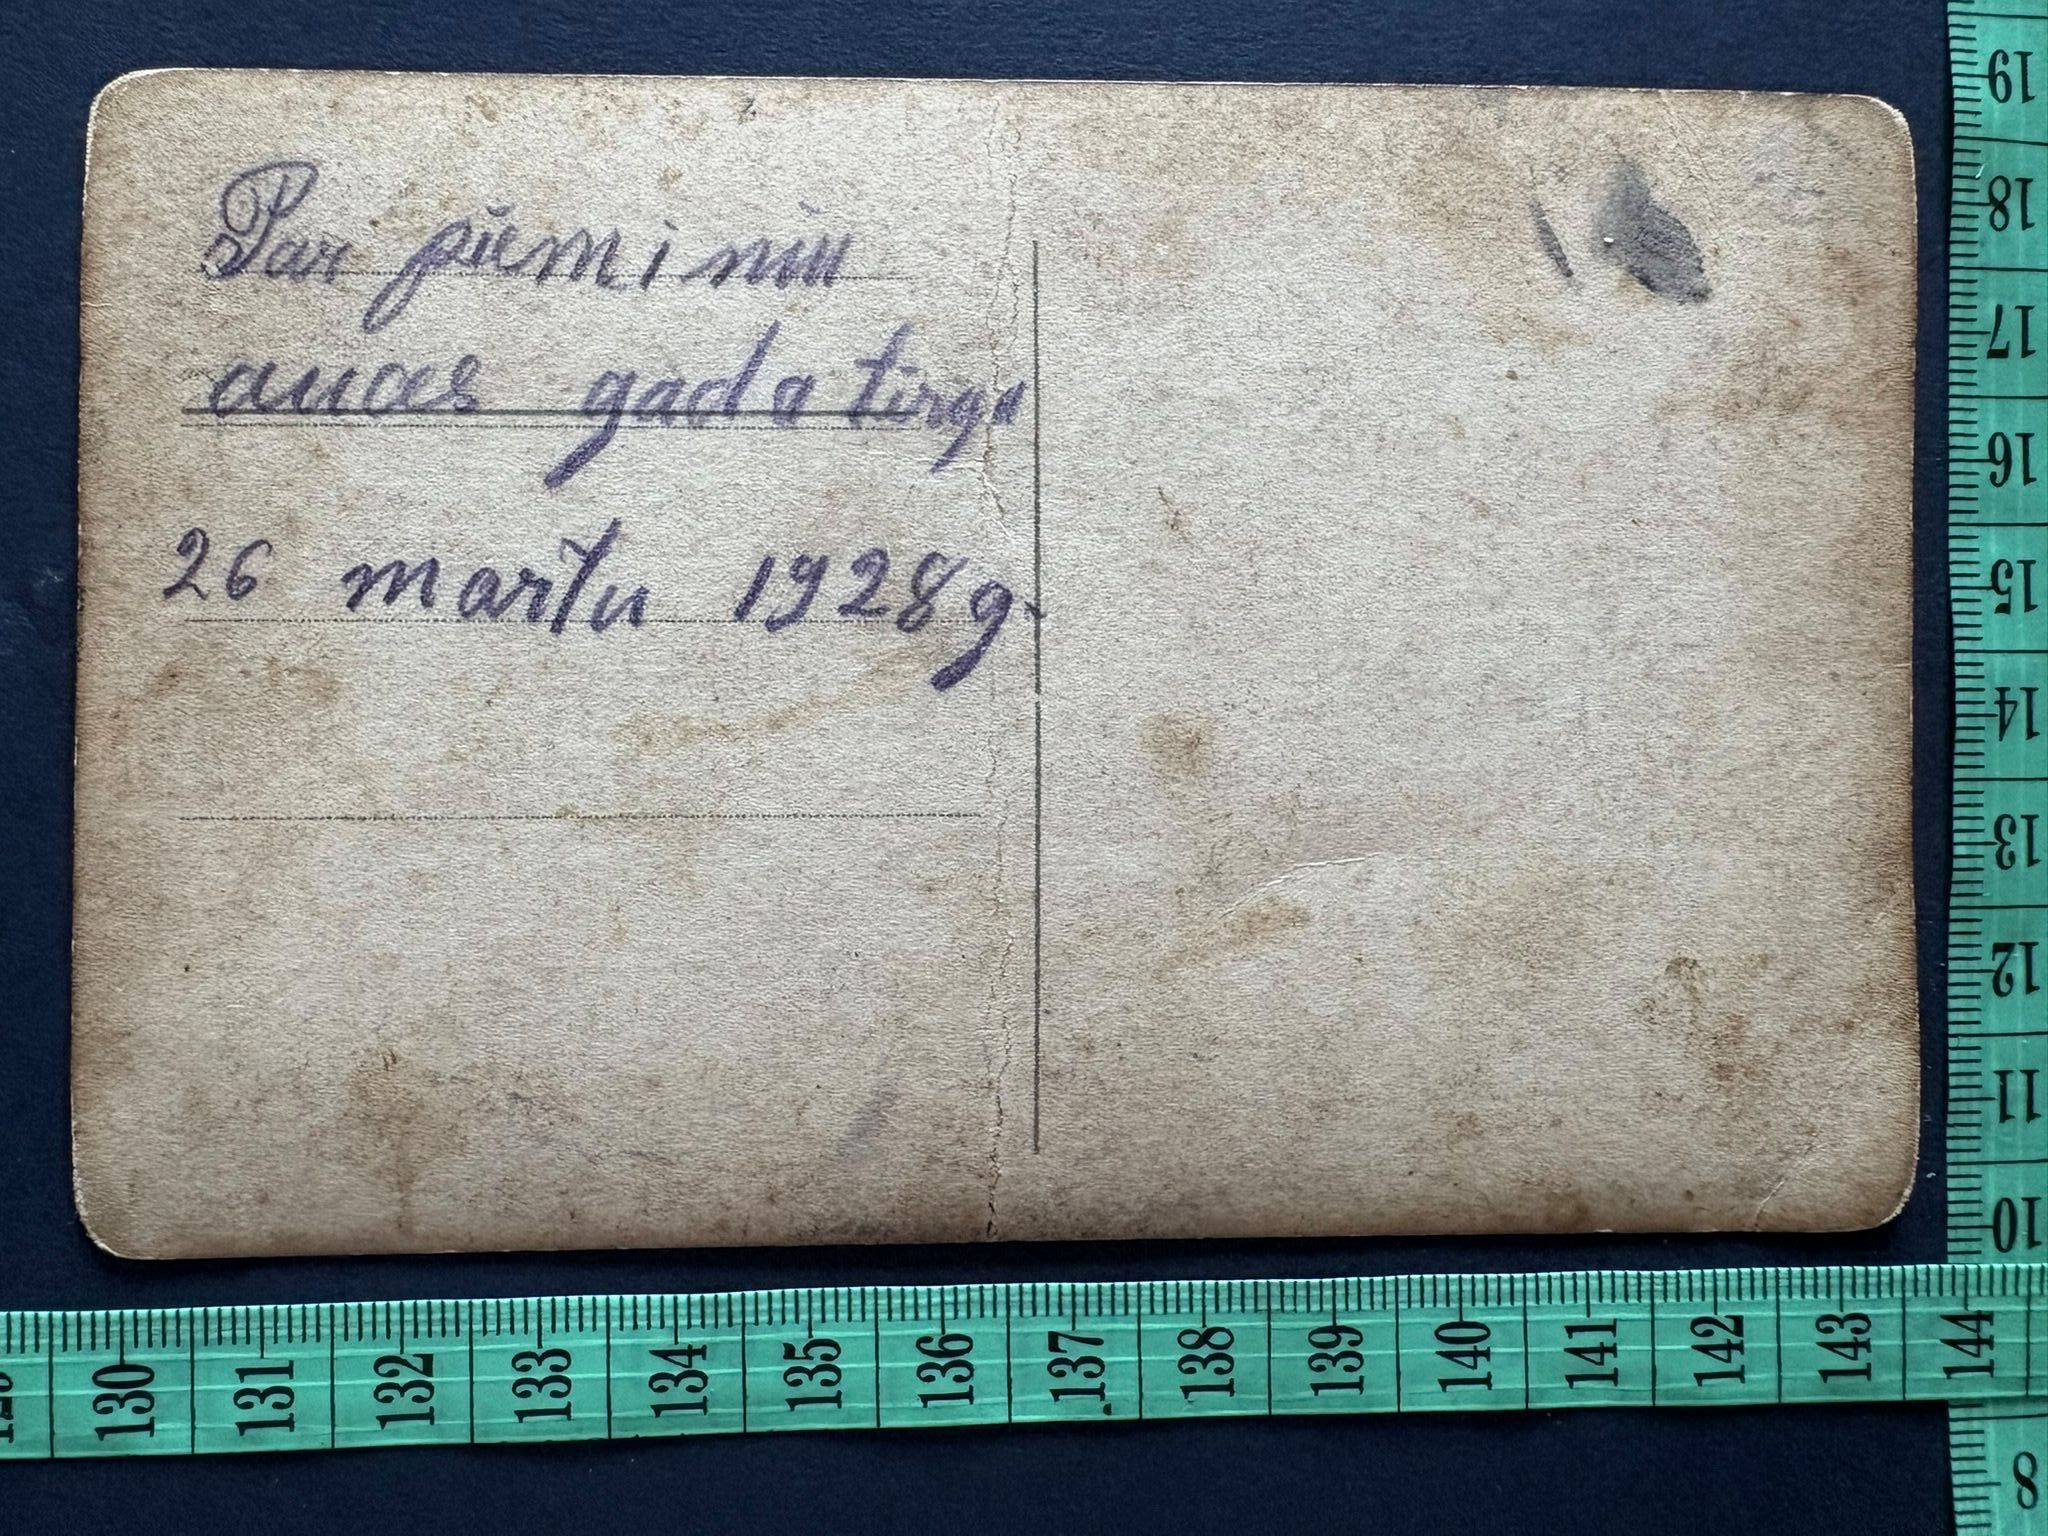 Par piemiņu
auces gada tirgu
26 martu 1928 g.
19
18
17
16
15
14
13
12
11
10
8
130 131 132 133 134 135 136 137 138 139 140 141 142 143 144